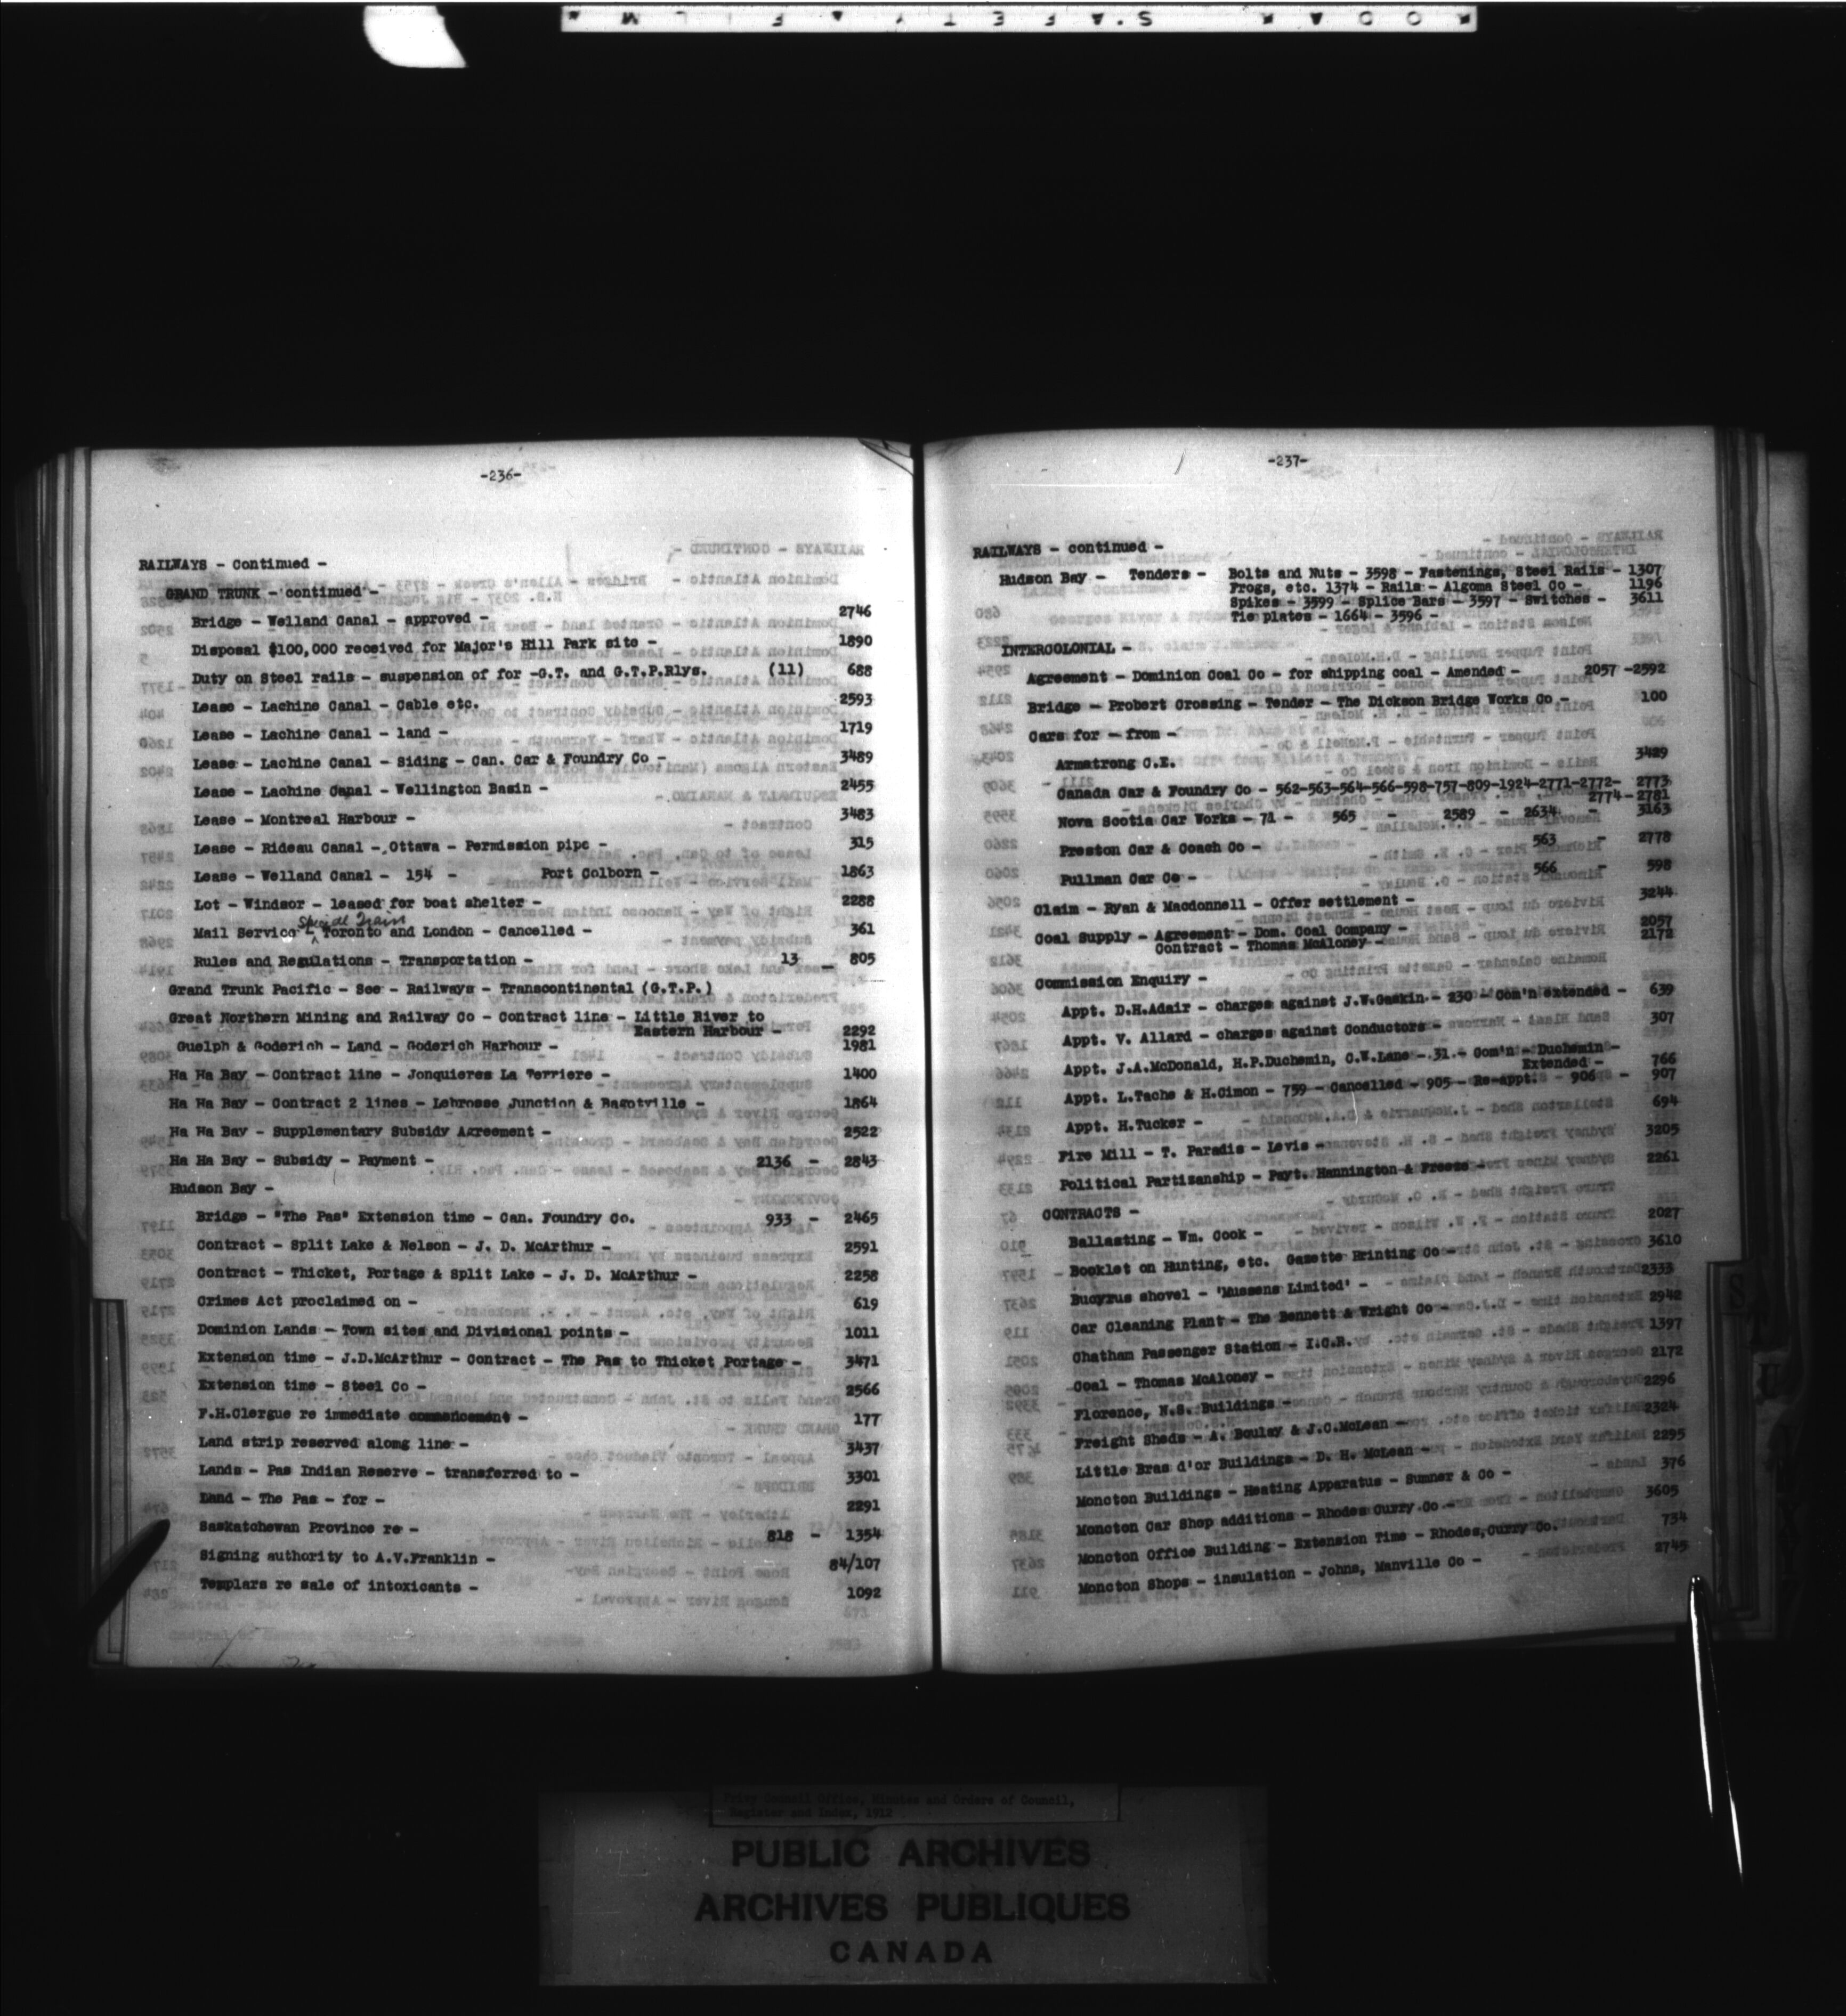 KODAK SAFETY FILM
-236-
RAILWAYS - Continued -
GRAND TRUNK - continued -
Bridge - Welland Canal - approved - 2746
Disposal $100,000 received for Major's Hill Park site - 1890
Duty on Steel rails - suspension of for -G.T. and G.T.P.Rlys. (11) 688
Lease - Lachine Canal - Cable etc. 2593
Lease - Lachine Canal - land - 1719
Lease - Lachine Canal - Siding - Can. Car & Foundry Co - 3489
Lease - Lachine Canal - Wellington Basin - 2455
Lease - Montreal Harbour - 3483
Lease - Rideau Canal - Ottawa - Permission pipe - 315
Lease - Welland Canal - 154 - Port Colborn - 1863
Lot - Windsor - leased for boat shelter - 2288
Special Train
Mail Service - Toronto and London - Cancelled - 361
Rules and Regulations - Transportation - 13 - 805
Grand Trunk Pacific - See - Railways - Transcontinental (G.T.P.)
Great Northern Mining and Railway Co - Contract line - Little River to
Eastern Harbour - 2292
Guelph & Goderich - Land - Goderich Harbour - 1981
Ha Ha Bay - Contract line - Jonquieres La Terriere - 1400
Ha Ha Bay - Contract 2 lines - Lebrosse Junction & Bagotville - 1864
Ha Ha Bay - Supplementary Subsidy Agreement - 2522
Ha Ha Bay - Subsidy - Payment - 2136 - 2843
Hudson Bay -
Bridge - "The Pas" Extension time - Can. Foundry Co. 933 - 2465
Contract - Split Lake & Nelson - J. D. McArthur - 2591
Contract - Thicket, Portage & Split Lake - J. D. McArthur - 2258
Crimes Act proclaimed on - 619
Dominion Lands - Town sites and Divisional points - 1011
Extension time - J.D.McArthur - Contract - The Pas to Thicket Portage - 3471
Extension time - Steel Co - 2566
F.H.Clergue re immediate commencement - 177
Land strip reserved along line - 3437
Lands - Pas Indian Reserve - transferred to - 3301
Land - The Pas - for - 2291
Saskatchewan Province re - 818 - 1354
Signing authority to A.V.Franklin - 84/107
Templars re sale of intoxicants - 1092
-237-
RAILWAYS - continued -
Hudson Bay - Tenders - Bolts and Nuts - 3598 - Fastenings, Steel Rails - 1307
Frogs, etc. 1374 - Rails - Algoma Steel Co - 1196
Spikes - 3599 - Splice Bars - 3597 - Switches - 3611
Tie plates - 1664 - 3596 -
INTERCOLONIAL -
Agreement - Dominion Coal Co - for shipping coal - Amended - 2057 -2592
Bridge - Probert Crossing - Tender - The Dickson Bridge Works Co - 100
Cars for - from -
Armstrong C.E. 3429
Canada Car & Foundry Co - 562-563-564-566-598-757-809-1924-2771-2772- 2773
2774-2781
Nova Scotia Car Works - 71 - 565 - 2589 - 2634 - 3163
Preston Car & Coach Co - 563 - 2778
Pullman Car Co - 566 - 598
Claim - Ryan & Macdonnell - Offer settlement - 3244
Coal Supply - Agreement - Dom. Coal Company - 2057
Contract - Thomas McAloney - 2172
Commission Enquiry -
Appt. D.H.Adair - charges against J.W.Gaskin - 230 - Com'n extended - 639
Appt. V. Allard - charges against Conductors - 307
Appt. J.A.McDonald, H.P.Duchemin, C.W.Lane - 31 - Com'n - Duchemin -
Extended - 766
Appt. L.Tache & H.Cimon - 759 - Cancelled - 905 - Re-appt. 906 - 907
Appt. H.Tucker - 694
Fire Mill - T. Paradis - Levis - 3205
Political Partizanship - Payt. Hannington & Freeze - 2261
CONTRACTS -
Ballasting - Wm. Cook - 2027
Booklet on Hunting, etc. Gazette Printing Co - 3610
Bucyrus shovel - 'Mussens Limited' - 2333
Car Cleaning Plant - The Bennett & Wright Co - 2942
Chatham Passenger Station - I.C.R. 1397
Coal - Thomas McAloney - 2172
Florence, N.S. Buildings - 2296
Freight Sheds - A. Boulay & J.C.McLean - 2324
Little Bras d'or Buildings - D. H. McLean - 2295
Moncton Buildings - Heating Apparatus - Sumner & Co - 376
Moncton Car Shop additions - Rhodes Curry Co - 3605
Moncton Office Building - Extension Time - Rhodes,Curry Co. 734
Moncton Shops - insulation - Johns, Manville Co - 2745
Privy Council Office, Minutes and Orders of Council,
Register and Index, 1912
PUBLIC ARCHIVES
ARCHIVES PUBLIQUES
CANADA